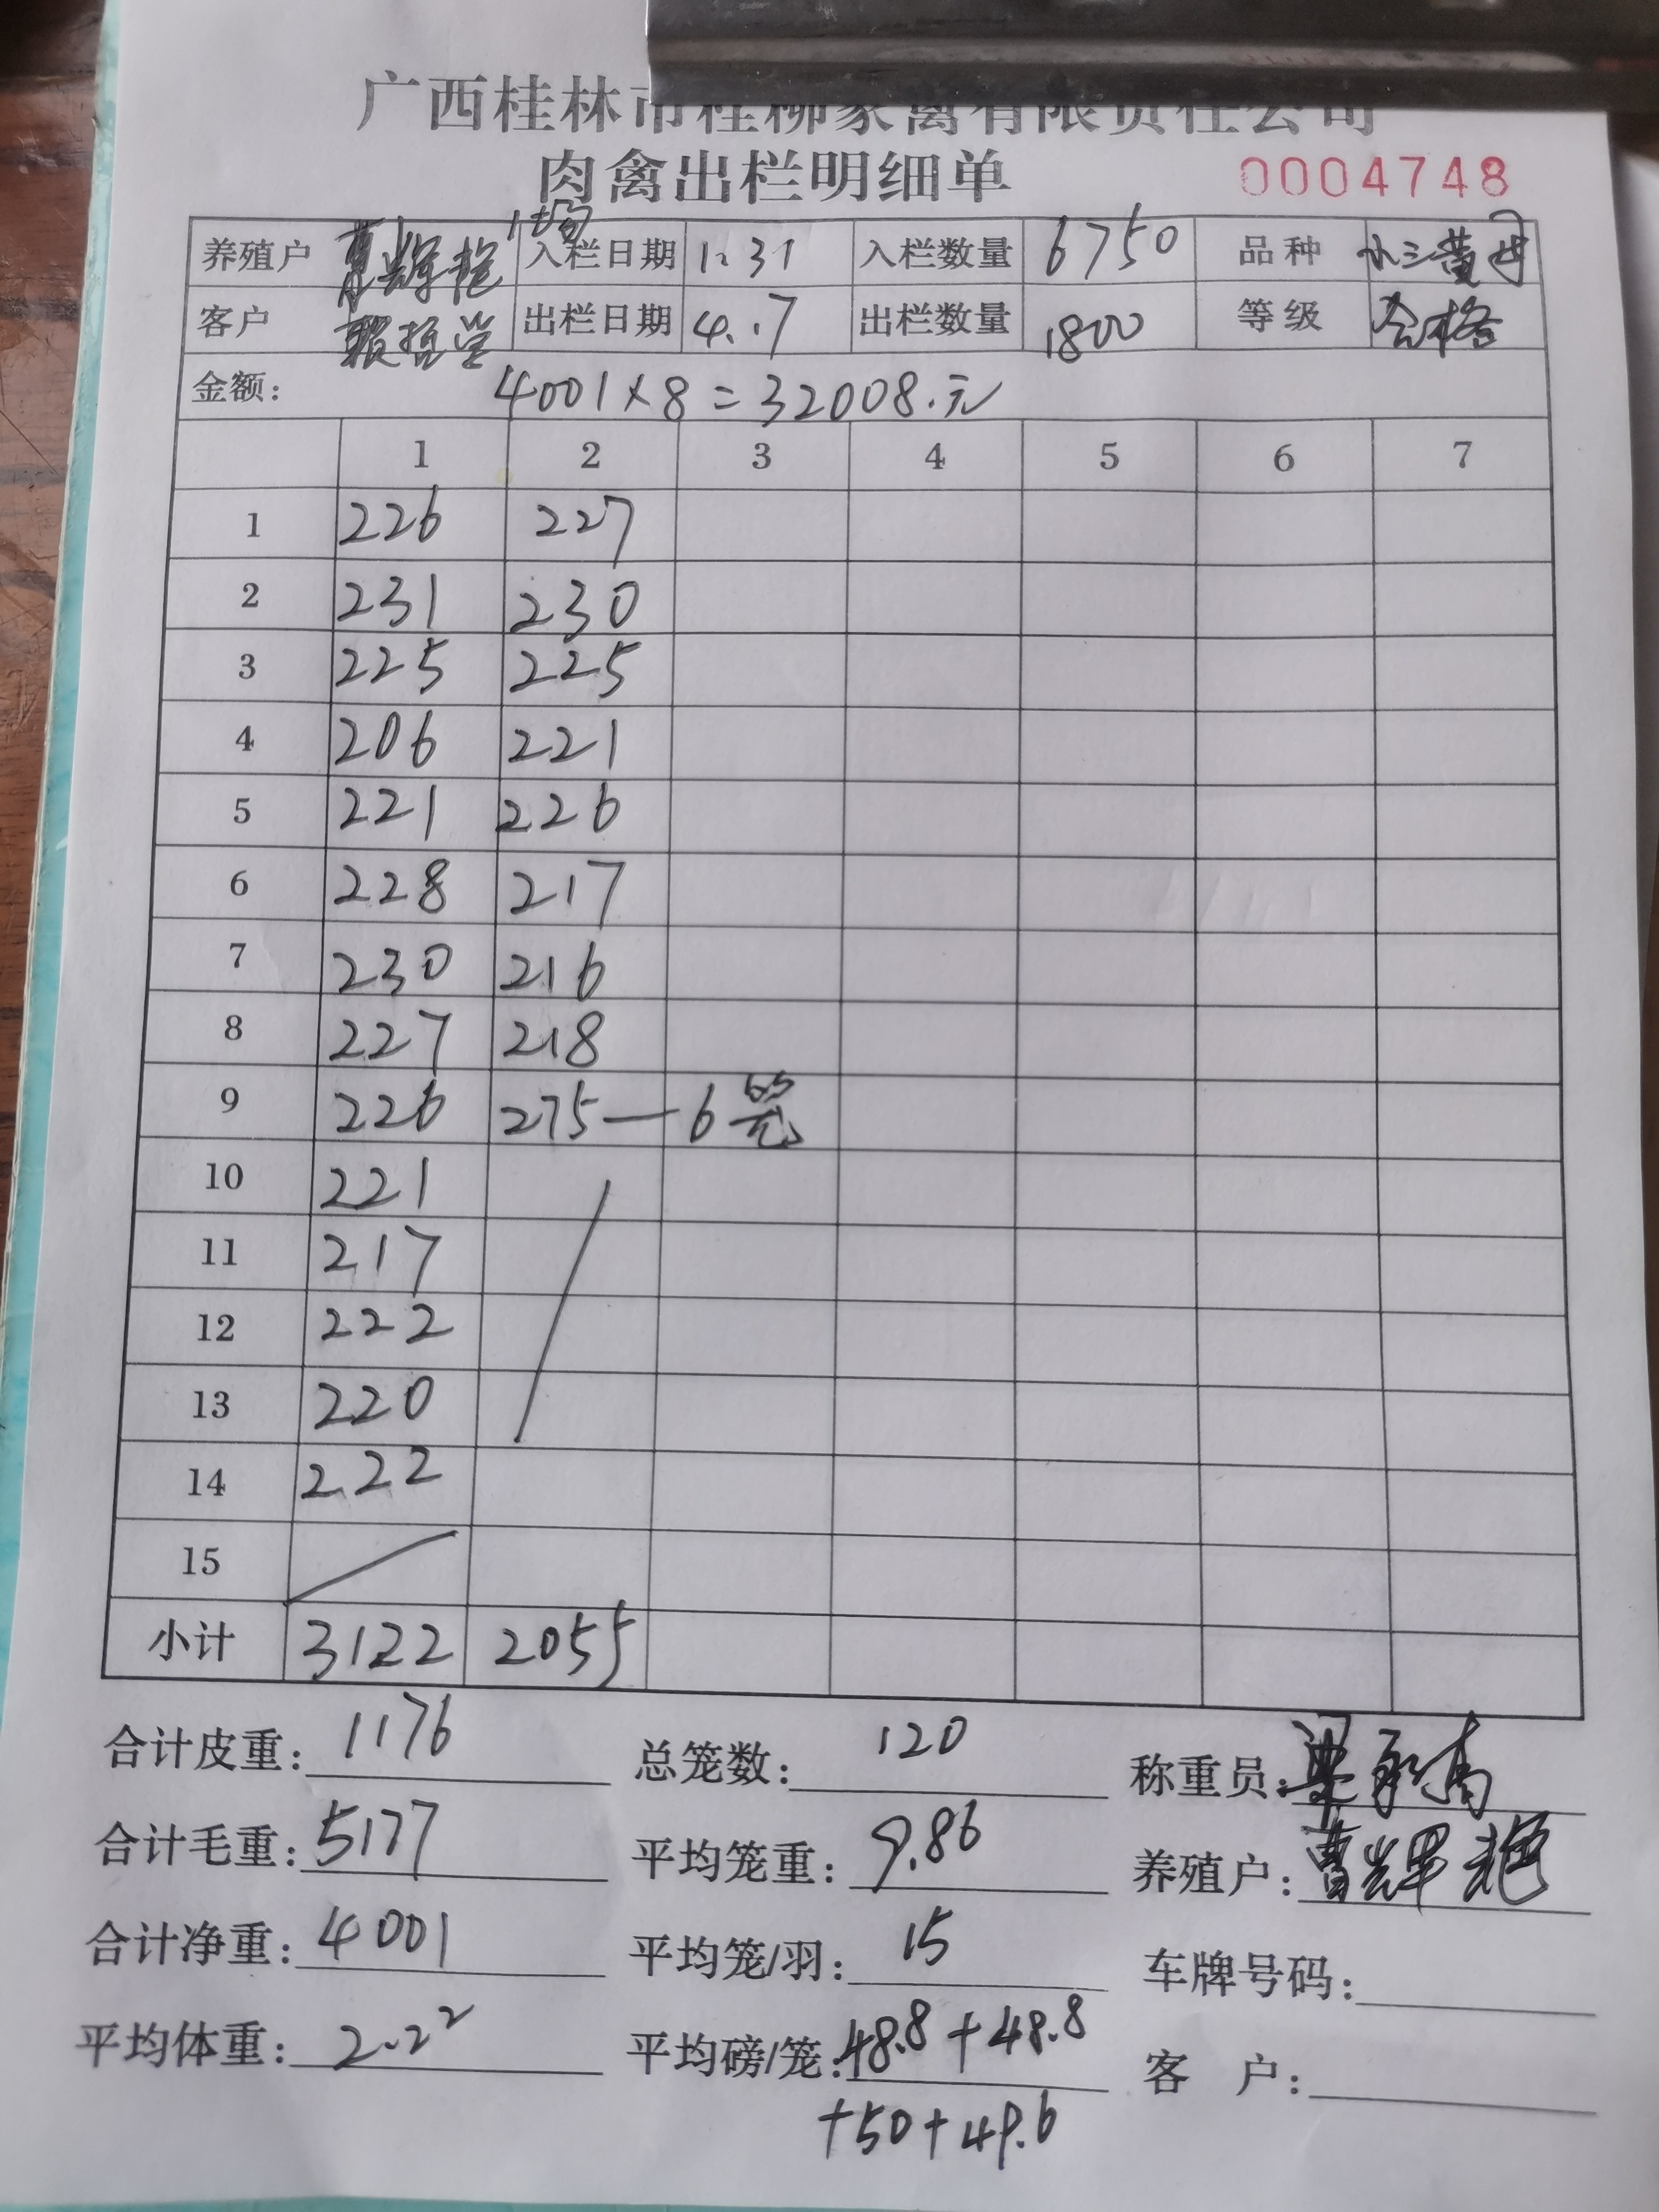 广西桂林市桂柳家禽有限责任公司
肉禽出栏明细单 0004748
养殖户 曹辉艳 入栏日期 1.31 入栏数量 6750 品种
客户 出栏日期 4.7 出栏数量 1800 等级 合格
金额: 4001×8=32008.元
1 2 3 4 5 6 7
1 226 227
2 231 230
3 225 225
4 206 221
5 221 226
6 228 217
7 230 216
8 227 218
9 226 275—6笼
10 221
11 217
12 222
13 220
14 222
15
小计 3122 2055
合计皮重: 1176 总笼数: 120 称重员:
合计毛重: 5177 平均笼重: 9.86 养殖户: 曹辉艳
合计净重: 4001 平均笼/羽: 15 车牌号码:
平均体重: 2.22 平均磅/笼: 48.8+48.8 客 户:
+50+49.6